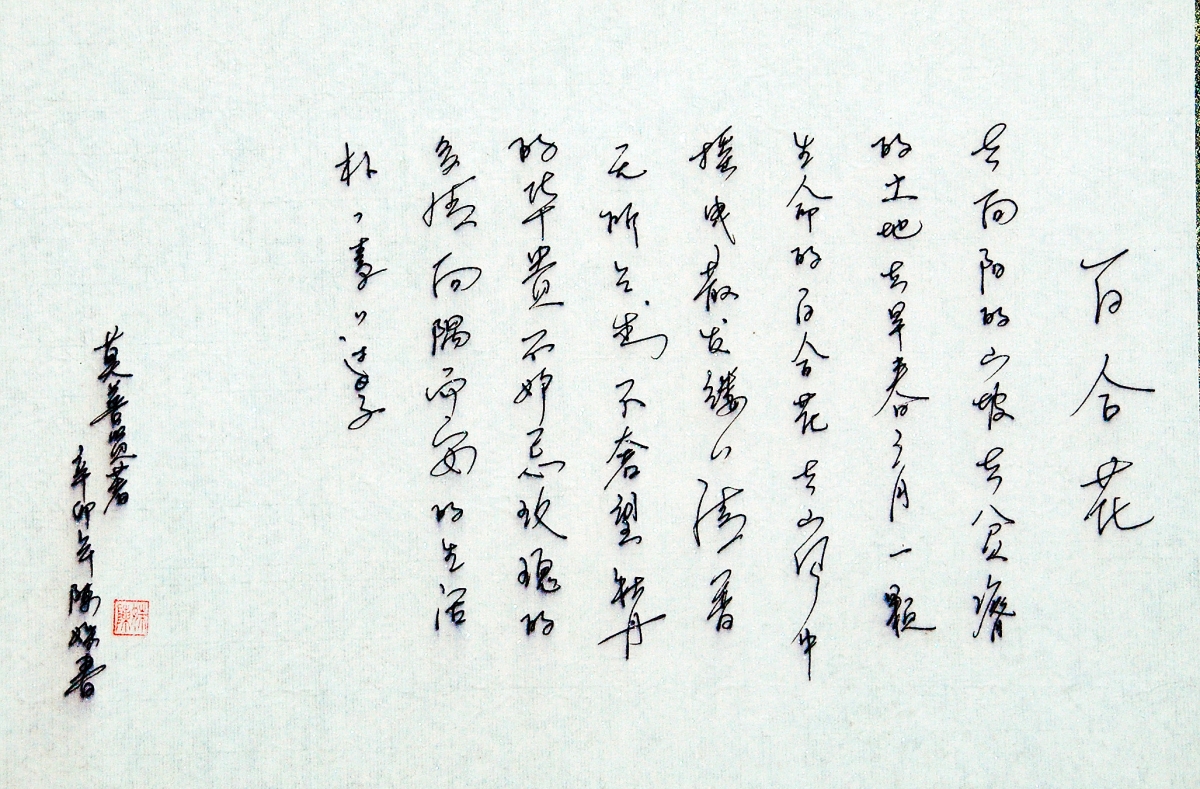 百合花
在向阳的山坡在贫瘠
的土地在早春三月一颗
生命的百合花在山风中
摇曳散发缕缕清香
无所企求不奢望牡丹
的华贵不妒忌玫瑰的
多情向隅而安的生活
朴朴素素过日子
莫善贤著
辛卯年陈 书